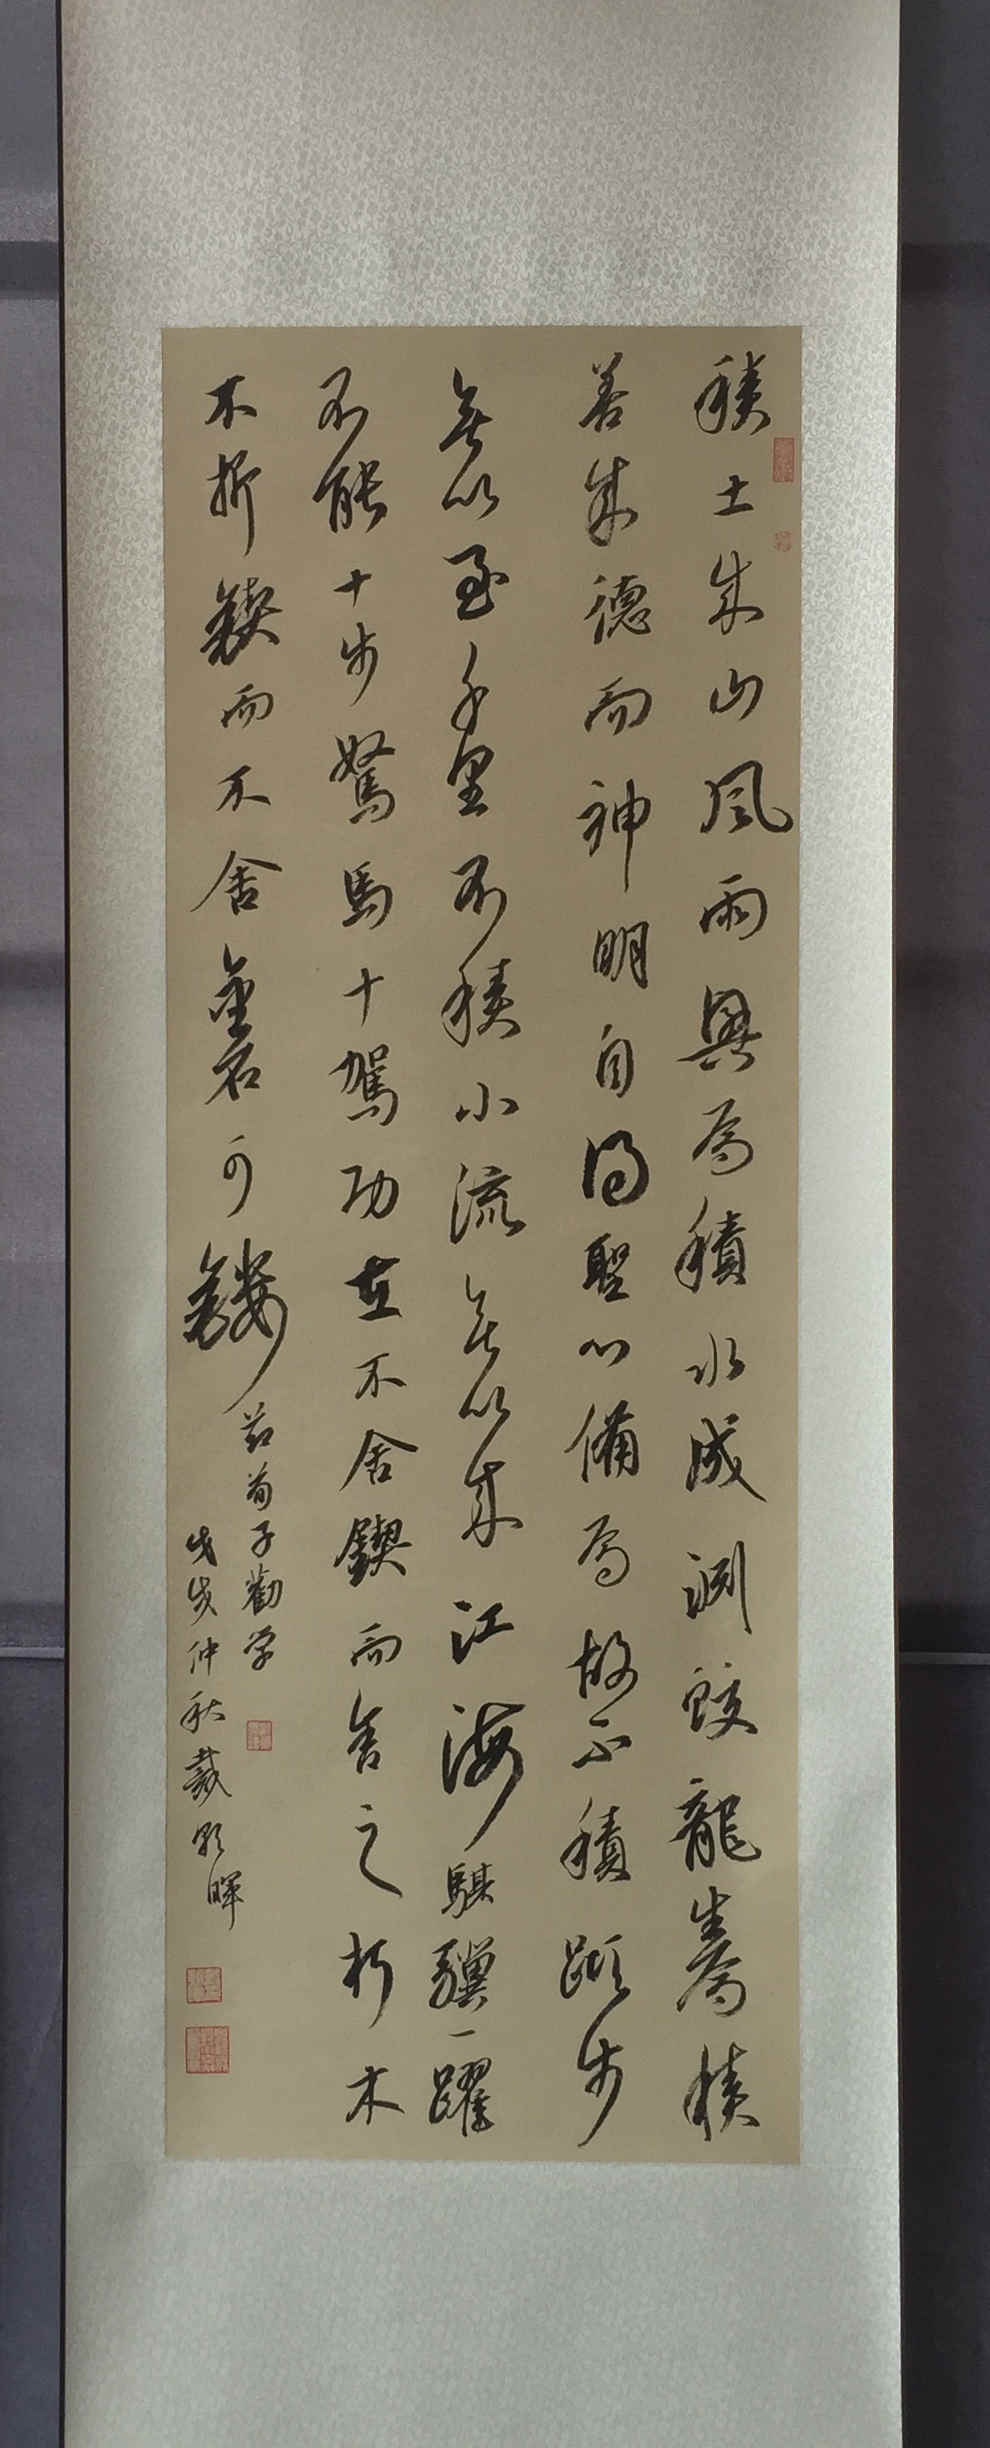 積土成山風雨興焉積水成淵蛟龍生焉積
善成德而神明自得聖心備焉故不積蹞步
無以至千里不積小流無以成江海騏驥一躍
不能十步駑馬十駕功在不舍鍥而舍之朽木
不折鍥而不舍金石可鏤
荀子勸学
戊戌仲秋戴
暉